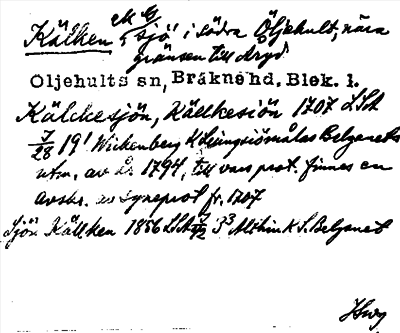 Kälken, sjö i södra Öljehult, nära
gränsen till Aryd
Öljehults sn, Bräkne hd, Blek. l.
Kälckesjön, Källkesiön 1707 LSA
7/28 19¹ Wickenberg Belganets
utm. av år 1794, till vars prot. finnes en
avskr. av syneprot fr. 1707
Sjön Kälken 1856 LSA 7/72 33 K S. Belganet